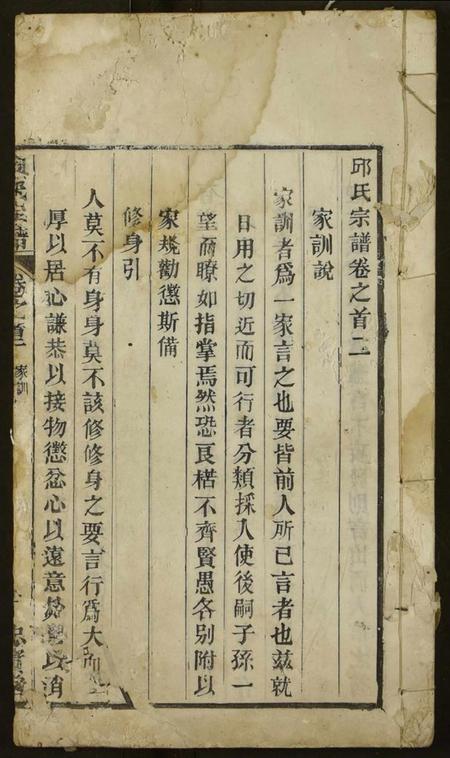 邱氏宗譜卷之首二
家訓說
家訓者爲一家言之也要皆前人所已言者也茲就
日用之切近而可行者分類採入使後嗣子孫一
望而瞭如指掌焉然恐良楛不齊賢愚各別附以
家規勸懲斯備
修身引
人莫不有身身莫不該修修身之要言行爲大
厚以居心謙恭以接物懲忿心以遠意外以消
氏宗譜 卷之首二 家訓